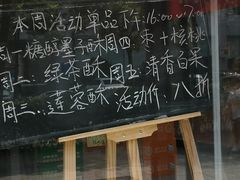 本周活动单品下午:16:00~17:00
周一:糖醇蛋子酥 周四:枣+核桃
周二:绿茶酥 周五:清香白果
周三:莲蓉酥 活动价:八折